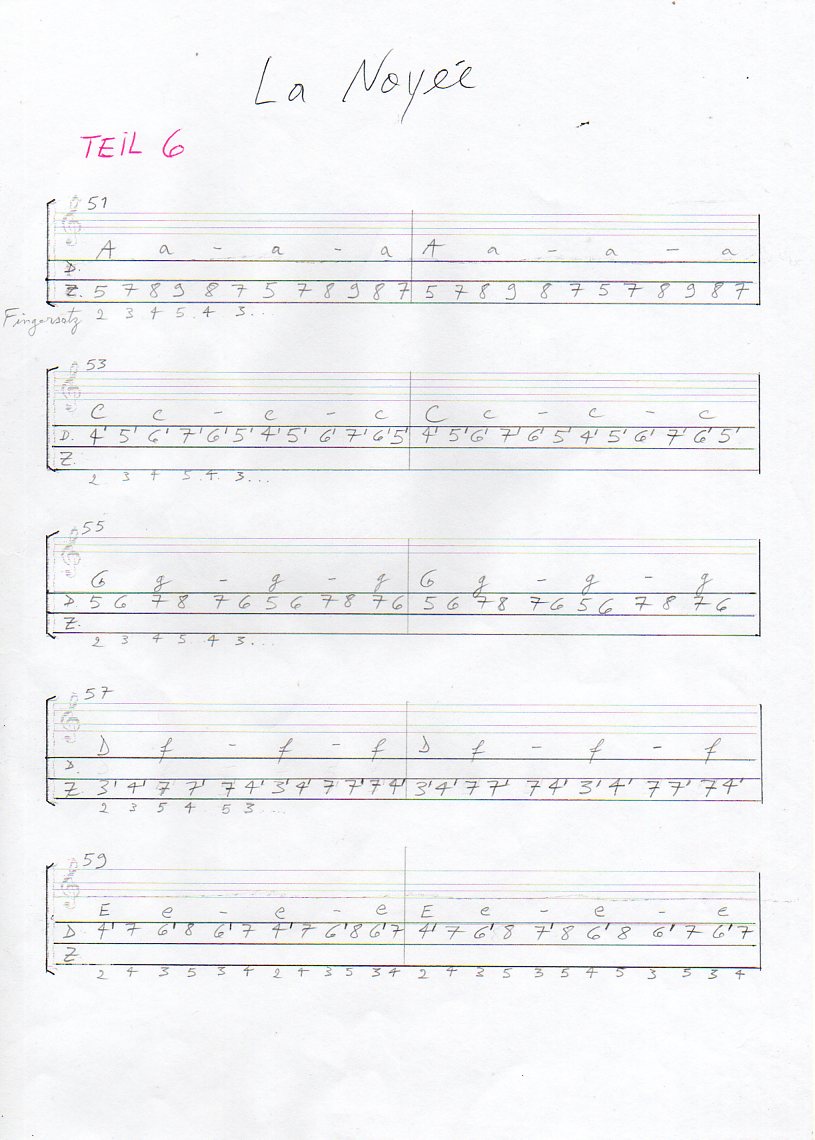 La Noyée
TEIL 6
51
A a - a - a A a - a - a
D.
Z. 5 7 8 9 8 7 5 7 8 9 8 7 5 7 8 9 8 7 5 7 8 9 8 7
Fingersatz 2 3 4 5 4 3...
53
C c - c - c C c - c - c
D. 4' 5' 6' 7' 6' 5' 4' 5' 6' 7' 6' 5' 4' 5' 6' 7' 6' 5' 4' 5' 6' 7' 6' 5'
Z.
2 3 4 5 4 3...
55
G g - g - g G g - g - g
D 5 6 7 8 7 6 5 6 7 8 7 6 5 6 7 8 7 6 5 6 7 8 7 6
Z.
2 3 4 5 4 3...
57
D f - f - f D f - f - f
D.
Z. 3' 4' 7 7' 7 4' 3' 4' 7 7' 7 4' 3' 4' 7 7' 7 4' 3' 4' 7 7' 7 4'
2 3 5 4 5 3...
59
E e - e - e E e - e - e
D. 4' 7 6' 8 6' 7 4' 7 6' 8 6' 7 4' 7 6' 8 7' 8 6' 8 6' 7 6' 7
Z
2 4 3 5 3 4 2 4 3 5 3 4 2 4 3 5 3 5 4 5 3 5 3 4